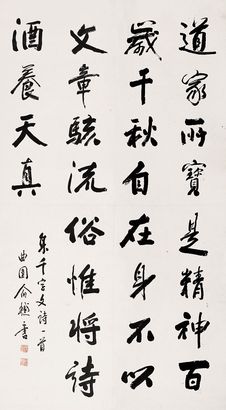 道家所寶是精神百
歲千秋自在身不以
文章駭流俗惟將詩
酒養天真
集千字文詩一首
曲園俞樾書